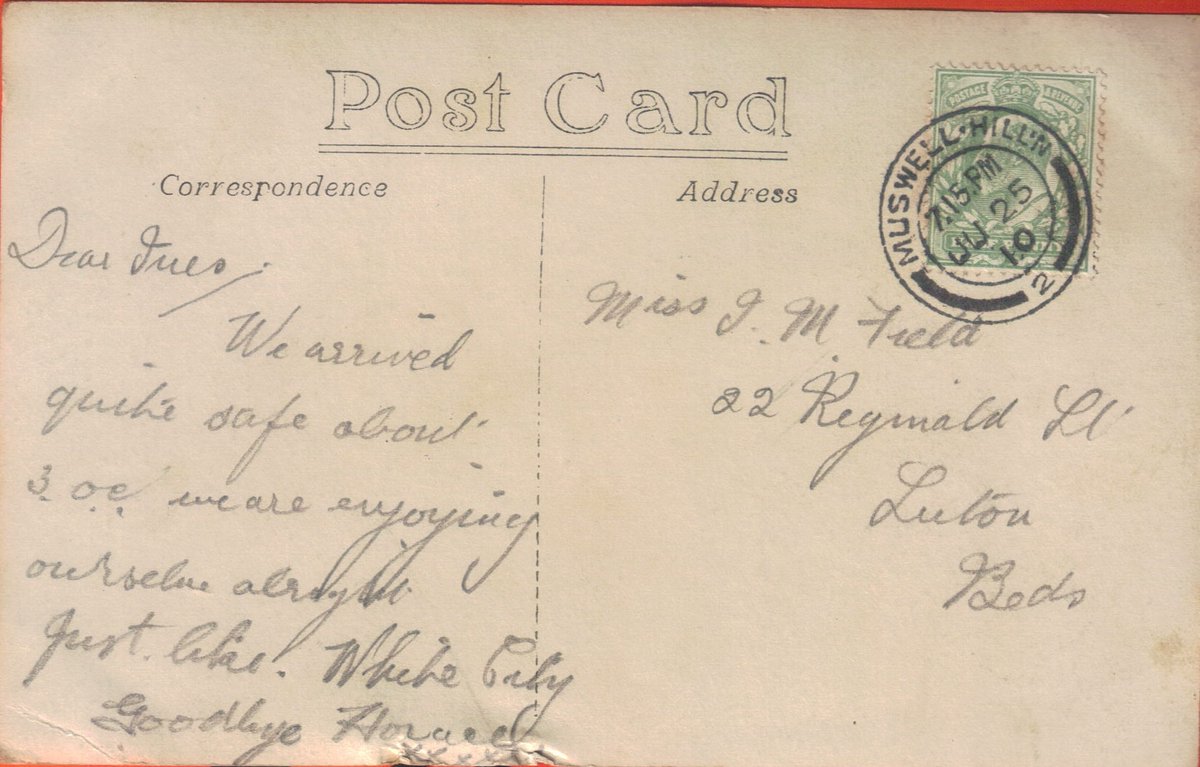 Post Card
Correspondence
Address
POSTAGE & REVENUE
MUSWELL-HILL·N
7.15 PM
JU 25
10
2
Dear Ines,
We arrived
quite safe about
3. oc. we are enjoying
ourselve alright
Just like. White City
Goodbye Horace
xxxxx
Miss I. M Field
22 Reginald St
Luton
Beds